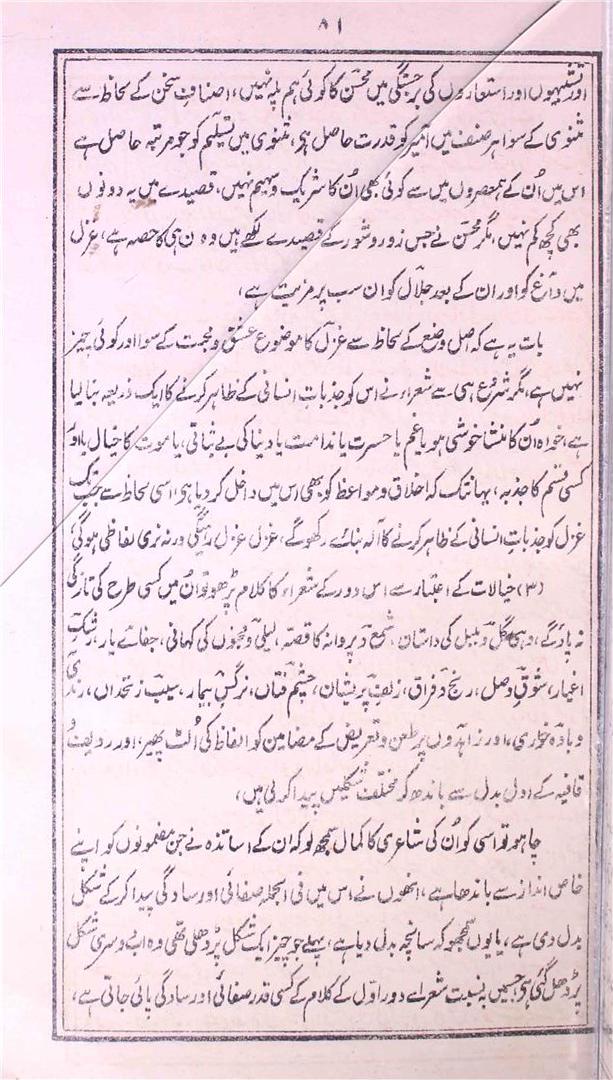 ۸۱
اور تشبیہوں اور استعاروں کی برجستگی میں محسن کا کوئی ہم پلہ نہیں، اصنافِ سخن کے لحاظ سے
مثنوی کے سوا ہر صنف میں امیر کو قدرت حاصل ہی، مثنوی میں تسلیم کو جو مرتبہ حاصل ہے
اس میں اُن کے ہمعصروں میں سے کوئی بھی اُن کا شریک و سہیم نہیں، قصیدے میں یہ دونوں
بھی کچھ کم نہیں، مگر محسن نے جس زور و شور کے قصیدے لکھے ہیں وہ ن ہی کا حصہ ہے، غزل
میں داغ کو اور ان کے بعد جلال کو ان سب پر مزیت ہے،
بات یہ ہے کہ اصل وضع کے لحاظ سے غزل کا موضوع عشق و محبت کے سوا اور کوئی چیز
نہیں ہے، مگر شروع ہی سے شعراء نے اس کو جذباتِ انسانی کے ظاہر کرنے کا ایک ذریعہ بنا لیا
ہے، خواہ اُن کا منشا خوشی ہو یا غم یا حسرت یا ندامت یا دنیا کی بے ثباتی، یا موت کا خیال یا اور
کسی قسم کا جذبہ، یہانتک کہ اخلاق و مواعظ کو بھی اس میں داخل کر دیا ہی، اسی لحاظ سے جب تک
غزل کو جذباتِ انسانی کے ظاہر کرنے کا آلہ بنائے رکھو گے، غزل غزل رہیگی ورنہ نری لفاظی ہو گی،
(۳) خیالات کے اعتبار سے اس دور کے شعراء کا کلام پڑھو تو اُن میں کسی طرح کی تازگی
نہ پاؤ گے، وہی گل و بلبل کی داستان، شمع و پروانہ کا قصہ، لیلیٰ و مجنوں کی کہانی، جفائے یار، رشکِ
اغیار، شوقِ وصل، رنجِ فراق، زلفِ پریشان، چشمِ فتاں، نرگسِ بیمار، سیبِ زنخداں، رندی
و بادہ خواری، اور زاہدوں پر طعن و تعریض کے مضامین کو الفاظ کی اُلٹ پھیر، اور ردیف و
قافیہ کے ادل بدل سے باندھ کر مختلف شکلیں پیدا کر لی ہیں،
چاہو تو اسی کو اُن کی شاعری کا کمال سمجھ لو کہ ان کے اساتذہ نے جن مضمونوں کو اپنے
خاص انداز سے باندھا ہے، انھوں نے اس میں فی الجملہ صفائی اور سادگی پیدا کر کے شکل
بدل دی ہے، یا یوں سمجھو کہ سانچہ بدل دیا ہے، پہلے جو چیز ایک شکل پر ڈھلی تھی وہ اب دوسری شکل
پر ڈھل گئی ہی جسمیں بہ نسبت شعراے دور اوّل کے کلام کے کسی قدر صفائی اور سادگی پائی جاتی ہے،